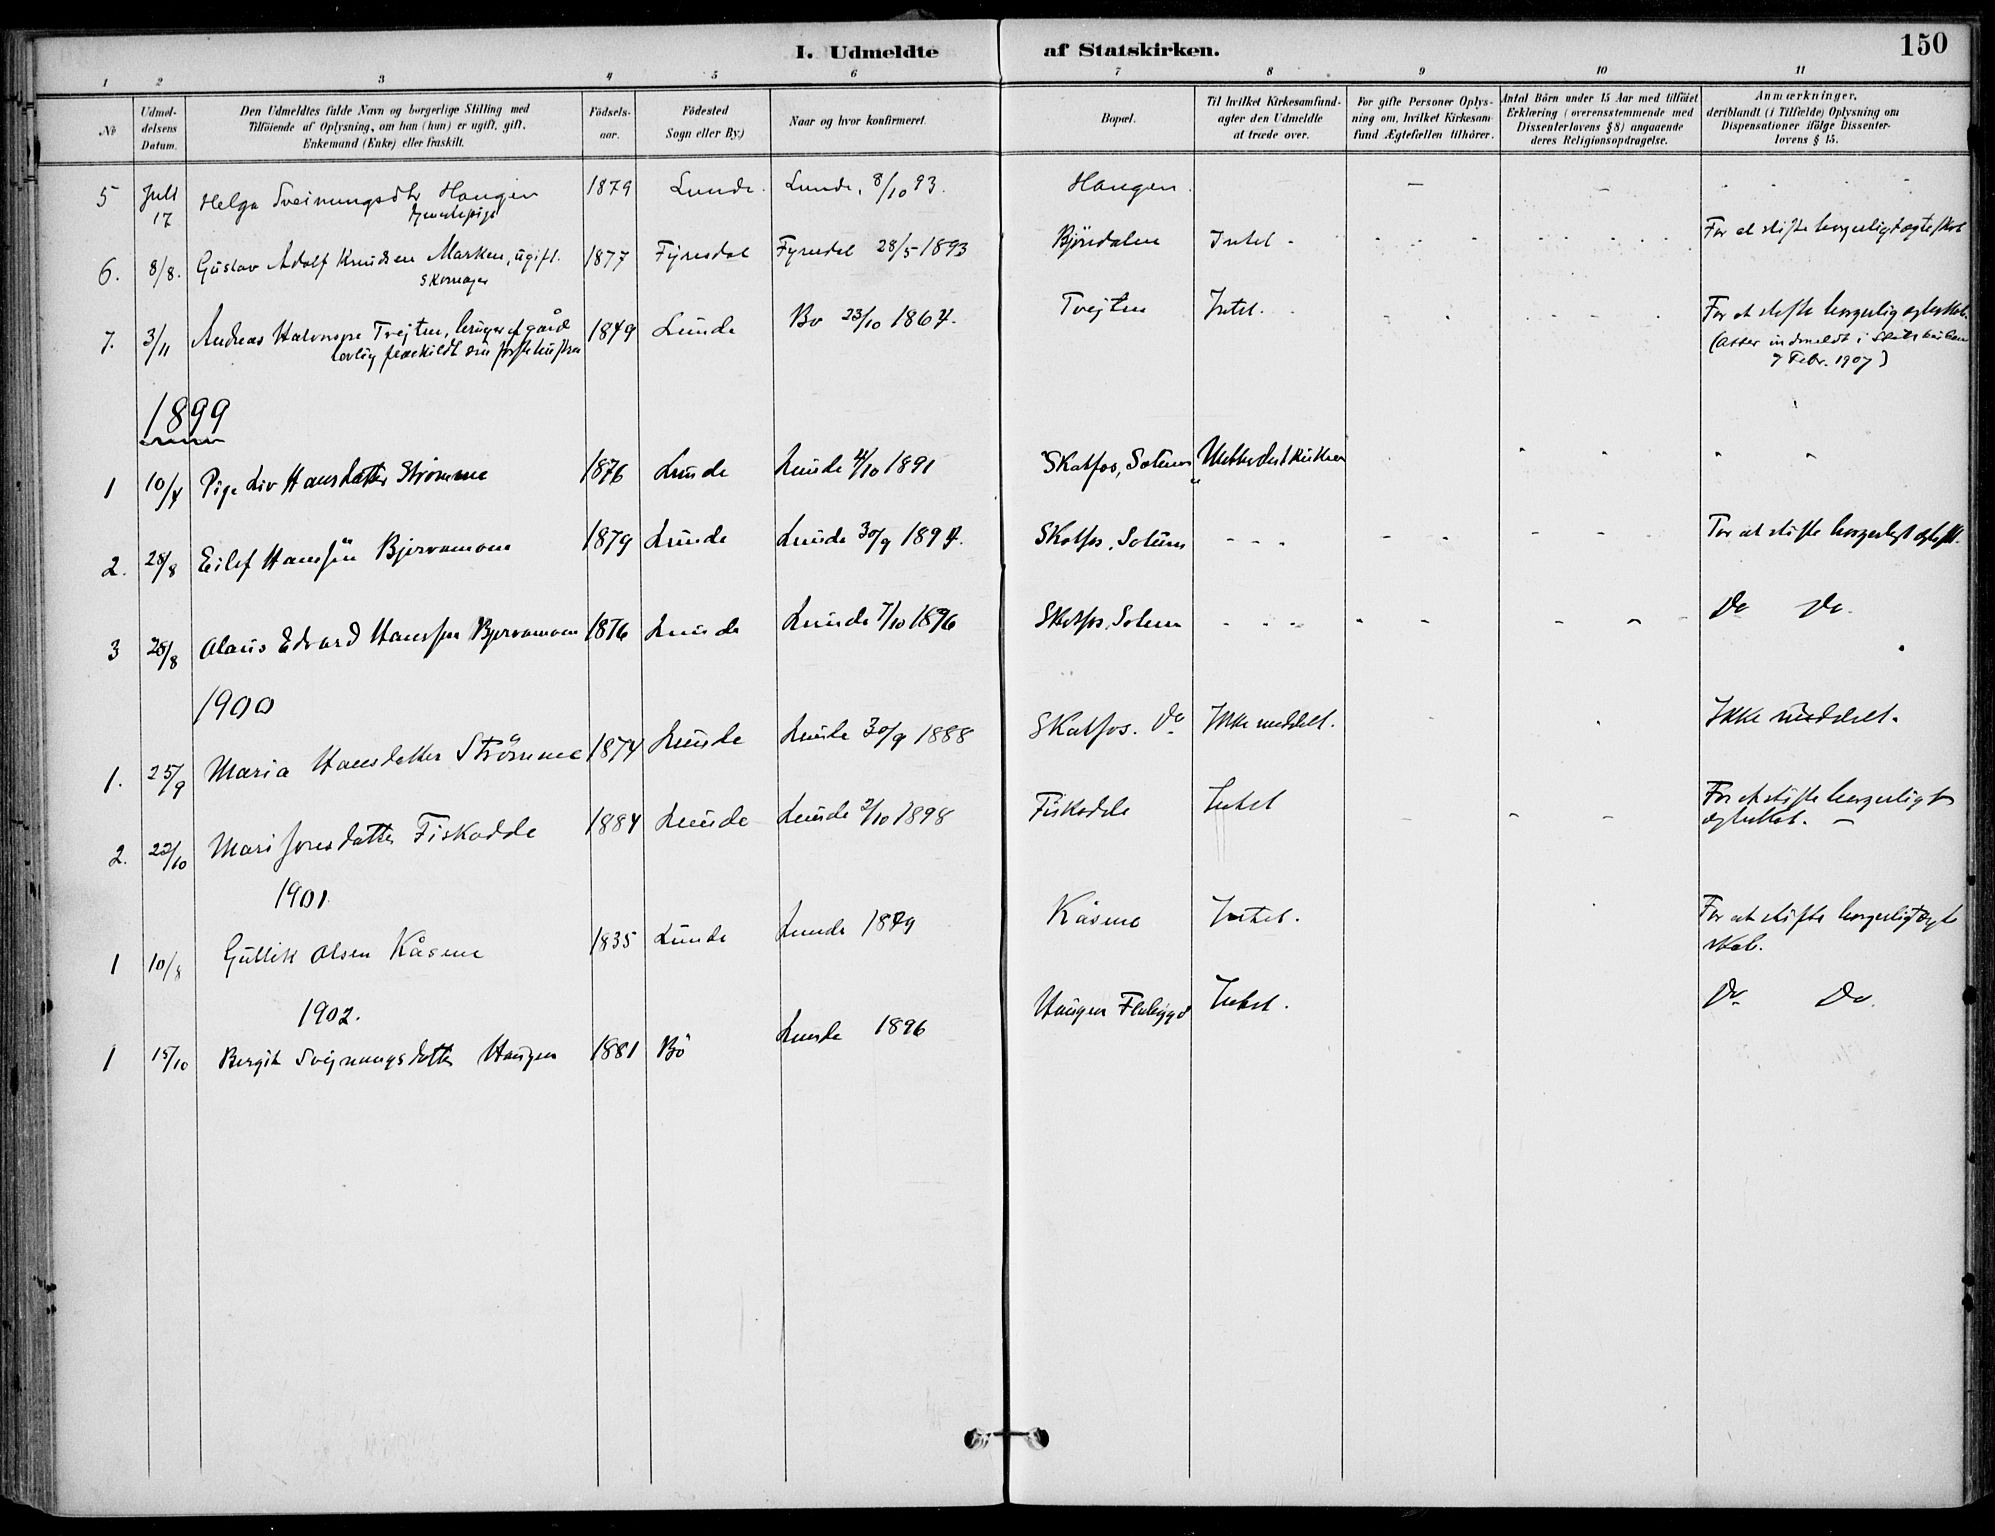 I. Udmeldte af Statskirken.
150
1 2 3 4 5 6 7 8 9 10 11
№
Udmeldelsens Datum.
Den Udmeldtes fulde Navn og borgerlige Stilling med
Tilføiende af Oplysning, om han (hun) er ugift, gift,
Enkemand (Enke) eller fraskilt.
Fødselsaar.
Fødested
Sogn eller By.)
Naar og hvor konfirmeret.
Bopæl.
Til hvilket Kirkesamfund-
agter den Udmeldte
at træde over.
For gifte Personer Oplys-
ning om, hvilket Kirkesam-
fund Ægtefællen tilhører.
Antal Børn under 15 Aar med tilføiet
Erklæring (overensstemmende med
Dissenterlovens § 8) angaaende
deres Religionsopdragelse.
Anmærkninger,
deriblandt (i Tilfælde) Oplysning om
Dispensationer ifølge Dissenter-
lovens § 15.
5 Juli 17 Helga Sveinungsdtr Haugen 1879 Lunde. Lunde, 8/10 93. Haugen. — —
tjenestepige
6. 8/8. Gustav Adolf Knudsen Marken, ugift. 1877 Fyresdal Fyresdal 28/5 1893 Bjørndalen Intet - For at stifte borgerligt ægteskab
Skomager
7. 3/11 Andreas Halvorsen Tvejten, bruger af gård 1849 Lunde Bø 23/10 1864. Tvejten Intet. For at stifte borgerlig egteskab.
lovlig fraskildt sin første hustru (atter indmeldt i Statskirken
7 Febr. 1907)
1899
1 10/4 Pige Liv Hansdatter Strømme 1876 Lunde Lunde 4/10 1891 Skotfos, Solum Methodistkirken " " " "
2. 28/8 Eilef Hanssøn Bjervamoen 1879 Lunde Lunde 30/9 1894. Skotfos, Solum - - - For at stifte borgerligt egtesk.
3 28/8 Olaus Edvard Hanssen Bjervamoen 1876 Lunde Lunde 7/10 1896 Skotfos, Solum - - - Do Do.
1900
1. 25/9 Maria Hansdatter Strömme 1874 Lunde Lunde 30/9 1888 Skotfos. Do Ikke meddelt. Ikke meddelt.
2. 22/10 Mari Jonsdatter Fiskodde 1884 Lunde Lunde 2/10 1898 Fiskodde Intet - - - For at stifte borgerligt
egteskab. —
1901
1 10/8 Gullik Olsen Kåsene 1835 Lunde Lunde 1849 Kåsene Intet. For at stifte borgerligt egte
skab.
1902.
1 15/10 Bergit Svejnungsdatter Haugen 1881 Bö Lunde 1896 Haugen Flabygd Intet. Do Do.